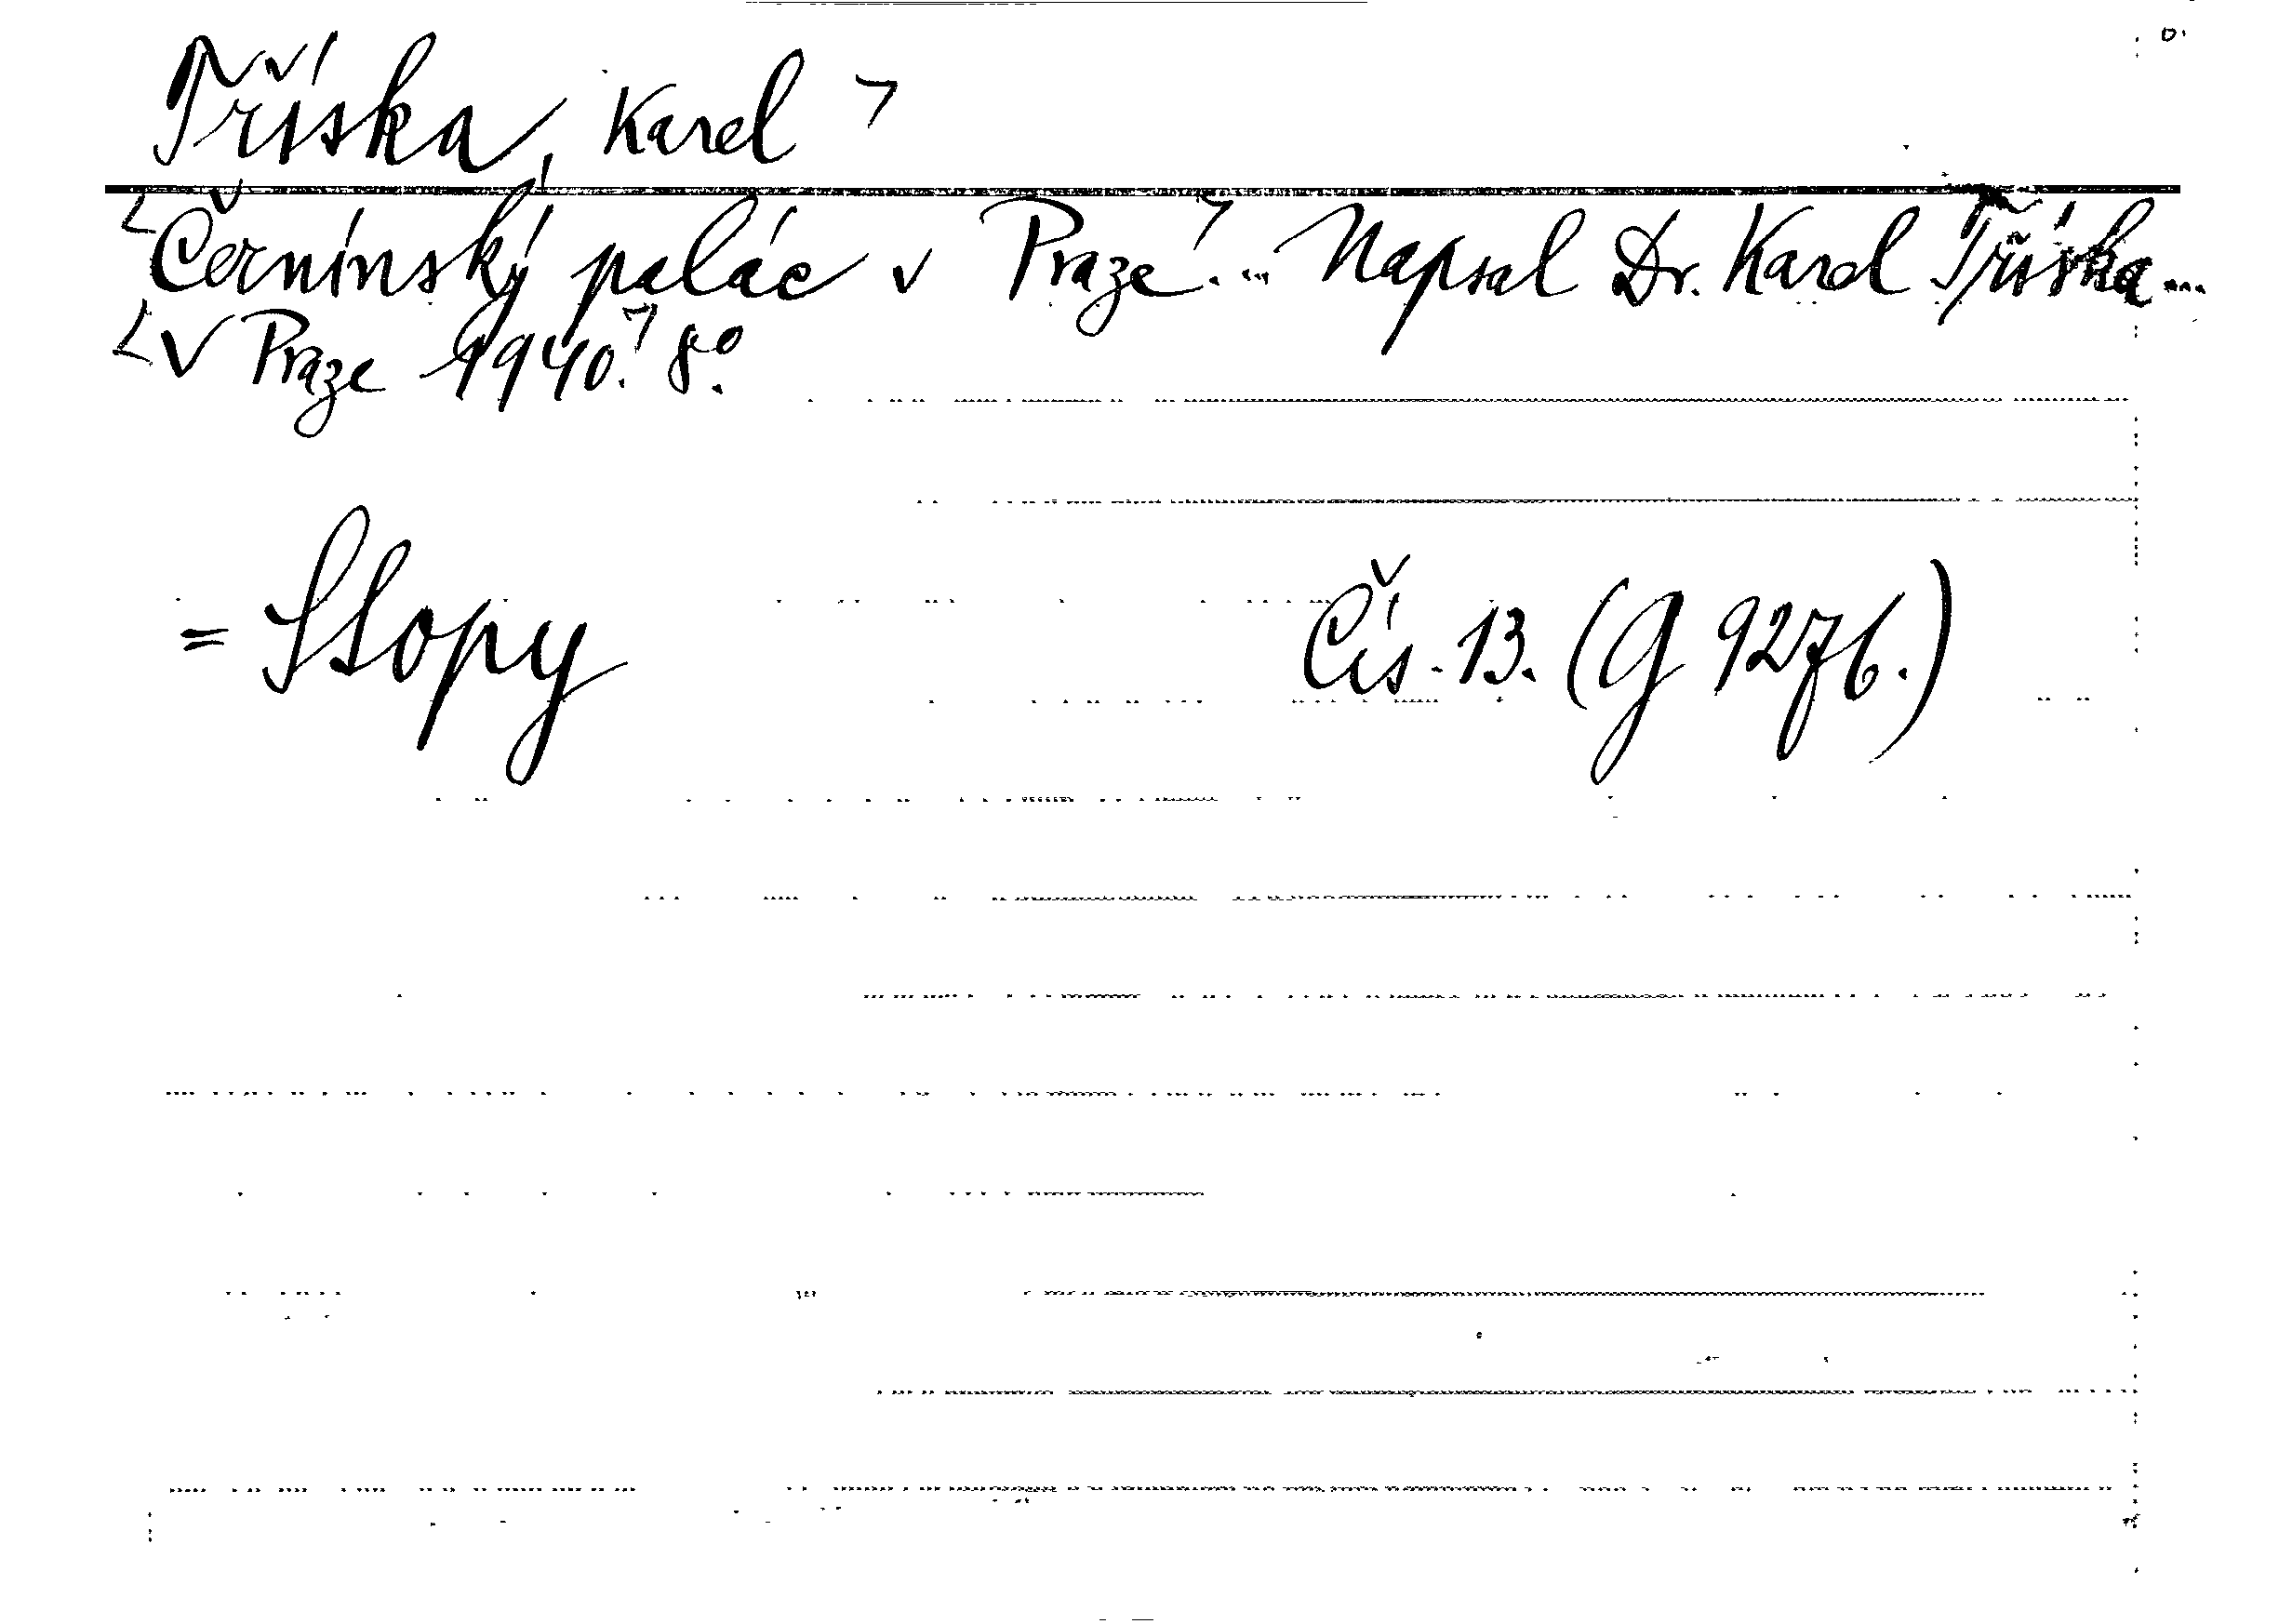 Tříska, Karel ⌝
⌞Černínský palác v Praze⌝... Napsal Dr. Karel Tříska...
⌞V Praze 1940.⌝ 8°.
= Stopy Čís. 13. (G 9276.)